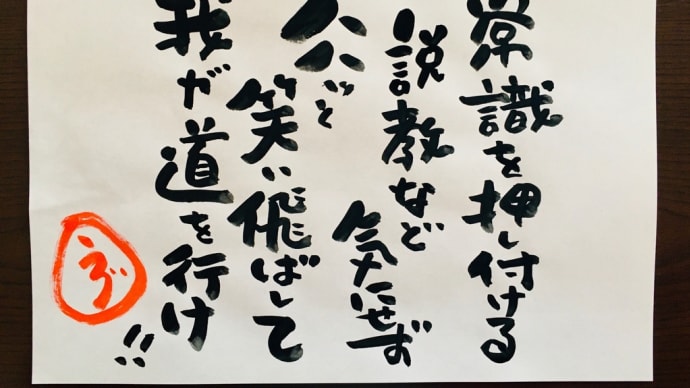 常識を押し付ける
説教など
気にせず
ハハハッと
笑い飛ばして
我が道を行け!!